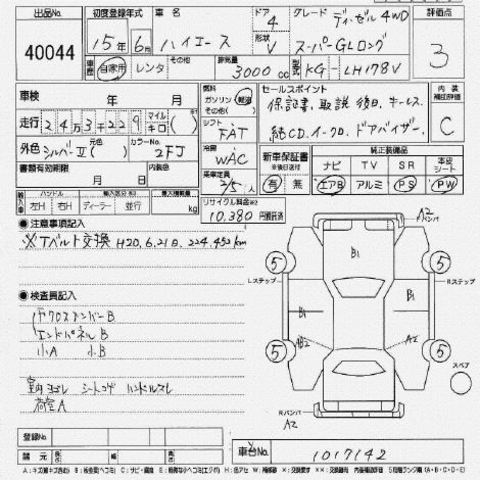 出品No. 初度登録年式 車名 ドア グレード 評価点
40044 15年 6月 ハイエース 4 ディーゼル4WD 3
形状 V スーパーGLロング
車歴 自家用 レンタ その他 排気量 3000cc 型式 KG-LH178V
車検 年 月 燃料 ガソリン 軽油 その他 セールスポイント 内装
保証書、取説、後日、キーレス
走行 243千229 マイル キロ シフト FAT 純CD、イークロ、ドアバイザー、 C
外色 シルバーⅡ カラーNo. 2FJ 冷房 WAC 新車保証書 純正装備品
書類有効期限 月 日 内装色 乗車定員 2/5人 有 無 ナビ TV SR 本皮シート
エアB アルミ PS PW
輸入車 ハンドル 左H 右H ディーラー 並行 kg リサイクル料金 10,380 円預託済
◉注意事項記入
※Tベルト交換 H20.6.21日、224.452km
A2
Rバンパ
B1
5 5
Lステップ Rステップ
◉検査員記入
クロスメンバーB
エンドパネルB
小A 小B
B1 B1
5 5
B2 A2
スペア
室内ヨゴレ シートコゲ ハンドルスレ
荷室A
Rバンパ
A2
登録No.
諸元
車台No. 1017142